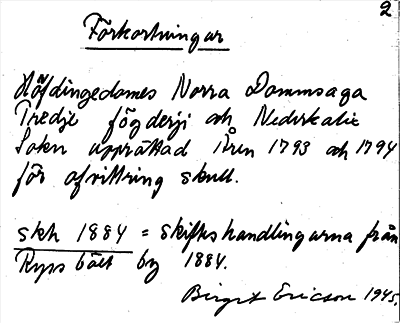 2
Förkortningar
Höfdingedömes Norra Dommsaga
Tredje fögderji och Nederkalix
Sokn upprättad Åren 1793 och 1794
för afvittring skull.
skh 1884 = skifteshandlingarna från
by 1884.
Birgit Ericson 1945.